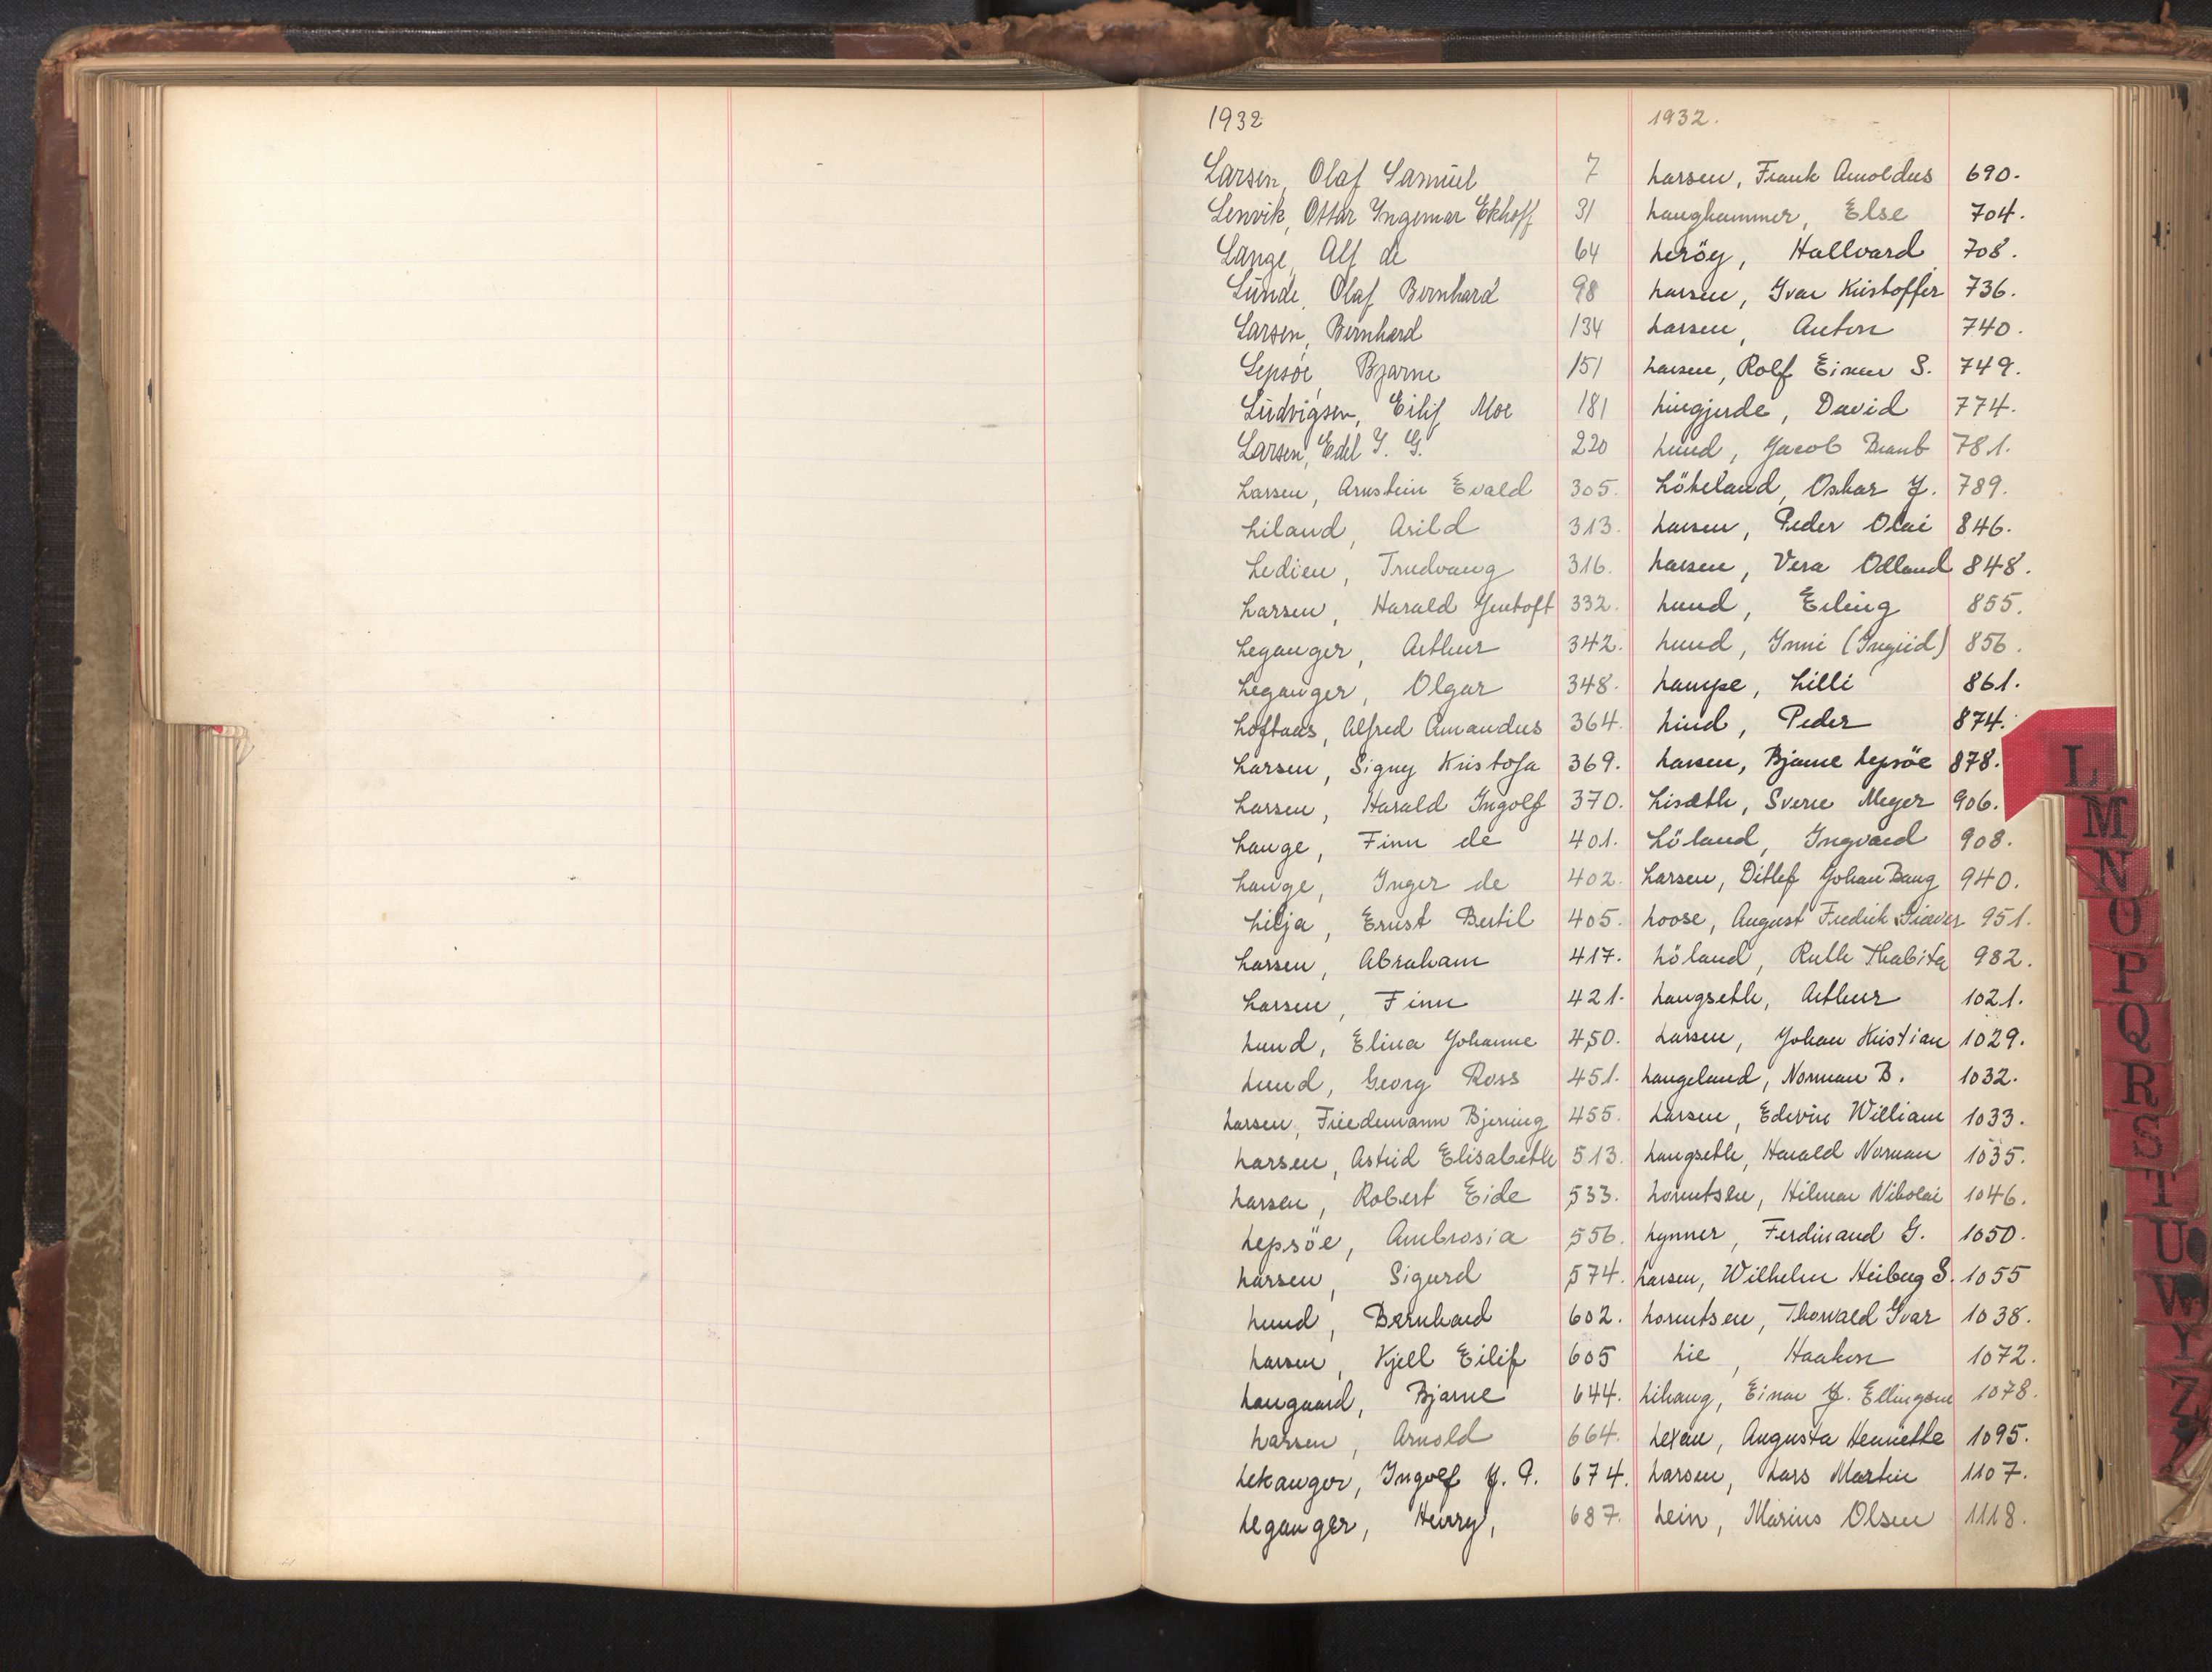 1932
Larsen, Olaf Samuel 7
Lenvik, Ottar Ingemar Ekhoff 31
Lange, Alf de 64
Lunde, Olaf Bernhard 98
Larsen, Bernhard 134
Lepsøe, Bjarne 151
Ludvigsen, Eilif Moe 181
Larsen, Edel I. G. 220
Larsen, Arnstein Evald 305.
Liland, Arild 313.
Ledien, Trudvang 316.
Larsen, Harald Gentoft 332.
Leganger, Arthur 342.
Leganger, Olgar 348.
Loftaas, Alfred Amandus 364.
Larsen, Signy Kristofa 369.
Larsen, Harald Ingolf 370.
Lange, Finn de 401.
Lange, Inger de 402.
Lilja, Ernst Bertil 405.
Larsen, Abraham 417.
Larsen, Finn 421.
Lund, Elina Johanne 450.
Lund, Georg Ross 451.
Larsen, Friedemann Bjerring 455.
Larsen, Astrid Elisabeth 513.
Larsen, Robert Eide 533.
Lepsöe, Ambrosia 556.
Larsen, Sigurd 574.
Lund, Bernhard 602.
Larsen, Kjell Eilif 605
Langaard, Bjarne 644.
Larsen, Arnold 664.
Lekanger, Ingolf J. P. 674.
Leganger, Henry, 687.
1932.
Larsen, Frank Arnoldus 690.
Langhammer, Else 704.
Leröy, Hallvard 708.
Larsen, Ivar Kristoffer 736.
Larsen, Anton 740.
Larsen, Rolf Einar S. 749.
Lingjerde, David 774.
Lund, Jacob Brant 781.
Lökeland, Oskar J. 789.
Larsen, Peder Olai 846.
Larsen, Vera Odland 848.
Lund, Erling 855.
Lund, Inni (Ingrid) 856.
Lampe, Lilli 861.
Lind, Peder 874.
Larsen, Bjarne Lepsöe 878.
Lisæth, Sverre Meyer 906.
Löland, Ingvard 908.
Larsen, Ditlef Johan Bang 940.
Loose, August Fredrik Giæver 951.
Löland, Ruth Thabita 982.
Langseth, Arthur 1021.
Larsen, Johan Kristian 1029.
Langeland, Norman B. 1032.
Larsen, Edwin William 1033.
Langseth, Harald Norman 1035.
Lorentsen, Hilmar Nikolai 1046.
Lynner, Ferdinand G. 1050.
Larsen, Wilhelm Heiberg S. 1055
Lorentsen, Thorvald Ivar 1038.
Lie, Haakon 1072.
Lihaug, Einar J. Ellingsen 1078.
Lexau, Augusta Henriette 1095.
Larsen, Lars Martin 1107.
Lein, Marius Olsen 1118.
L
M
N
O
P
Q
R
S
T
U
W
Y
Z